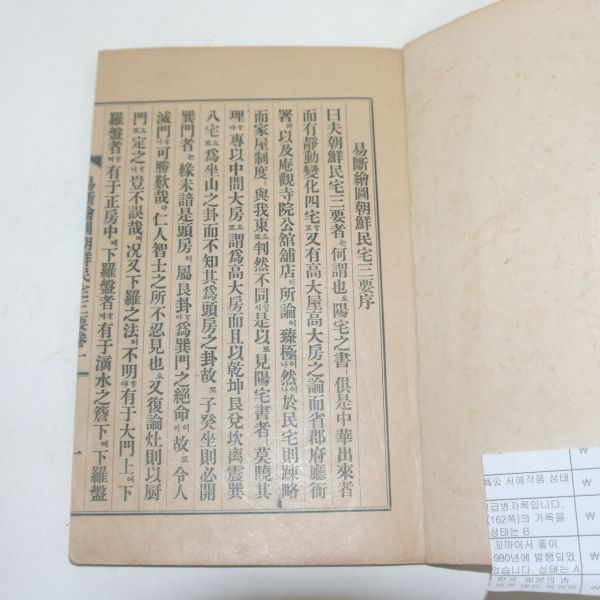 易斷繪圖朝鮮民宅三要序
曰夫朝鮮民宅三要者는何謂也오陽宅之書ㅣ俱是中華出來者
而有靜動變化四宅고又有高大屋高大房之論而省郡府廳衙
署와以及庵觀寺院公舘舖店의所論이臻極이나然이나於民宅則踈略
而家屋制度ㅣ與我東으로判然不同이라是以로見陽宅書者ㅣ莫曉其
理야專以中間大房으로謂爲高大房而且以乾坤艮兌坎离震巽
八宅으로爲坐山之卦而不知其爲頭房之卦故로子癸坐則必開
巽門者는緣未諳是頭房이屬艮卦야爲巽門之絕命이라故로令人
滅門니可勝歎哉아仁人智士之所不忍見也로다又復論灶則以厨
門으로定之니豈不誤哉아况又下羅之法이不明야有于大門上에下
羅盤者며有于正房中에下羅盤者며有于滴水之簷下에下羅盤
易斷繪圖朝鮮民宅三要卷一
一
서예작품 상태
급병자록입니다.
(162쪽)의 기록을
상태는 B
꼬마어서 돌이
980년에 발행되었
었습니다. 상태는 A
₩
₩
₩